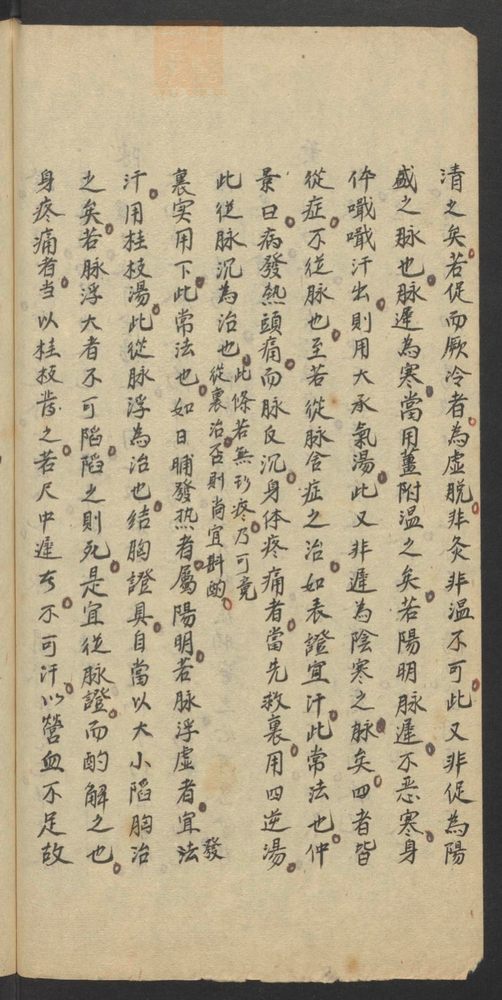 清之矣若促而厥冷者為虛脫非灸非温不可此又非促為陽
盛之脉也脉遲為寒當用薑附温之矣若陽明脉遲不惡寒身
体濈濈汗出則用大承氣湯此又非遲為陰寒之脉矣四者皆
從症不從脉也至若從脉舍症之治如表證宜汗此常法也仲
景曰病發熱頭痛而脉反沉身体疼痛者當先救裏用四逆湯
此從脉沉為治也此條若無疼乃可竟從裏治否則尚宜斟酌
裏实用下此常法也如日晡發热者屬陽明若脉浮虛者宜法發
汗用桂枝湯此從脉浮為治也结胸證具自當以大小陷胸治
之矣若脉浮大者不可陷陷之則死是宜從脉證而酌解之也
身疼痛者当以桂枝之若尺中遲不可汗以營血不足故